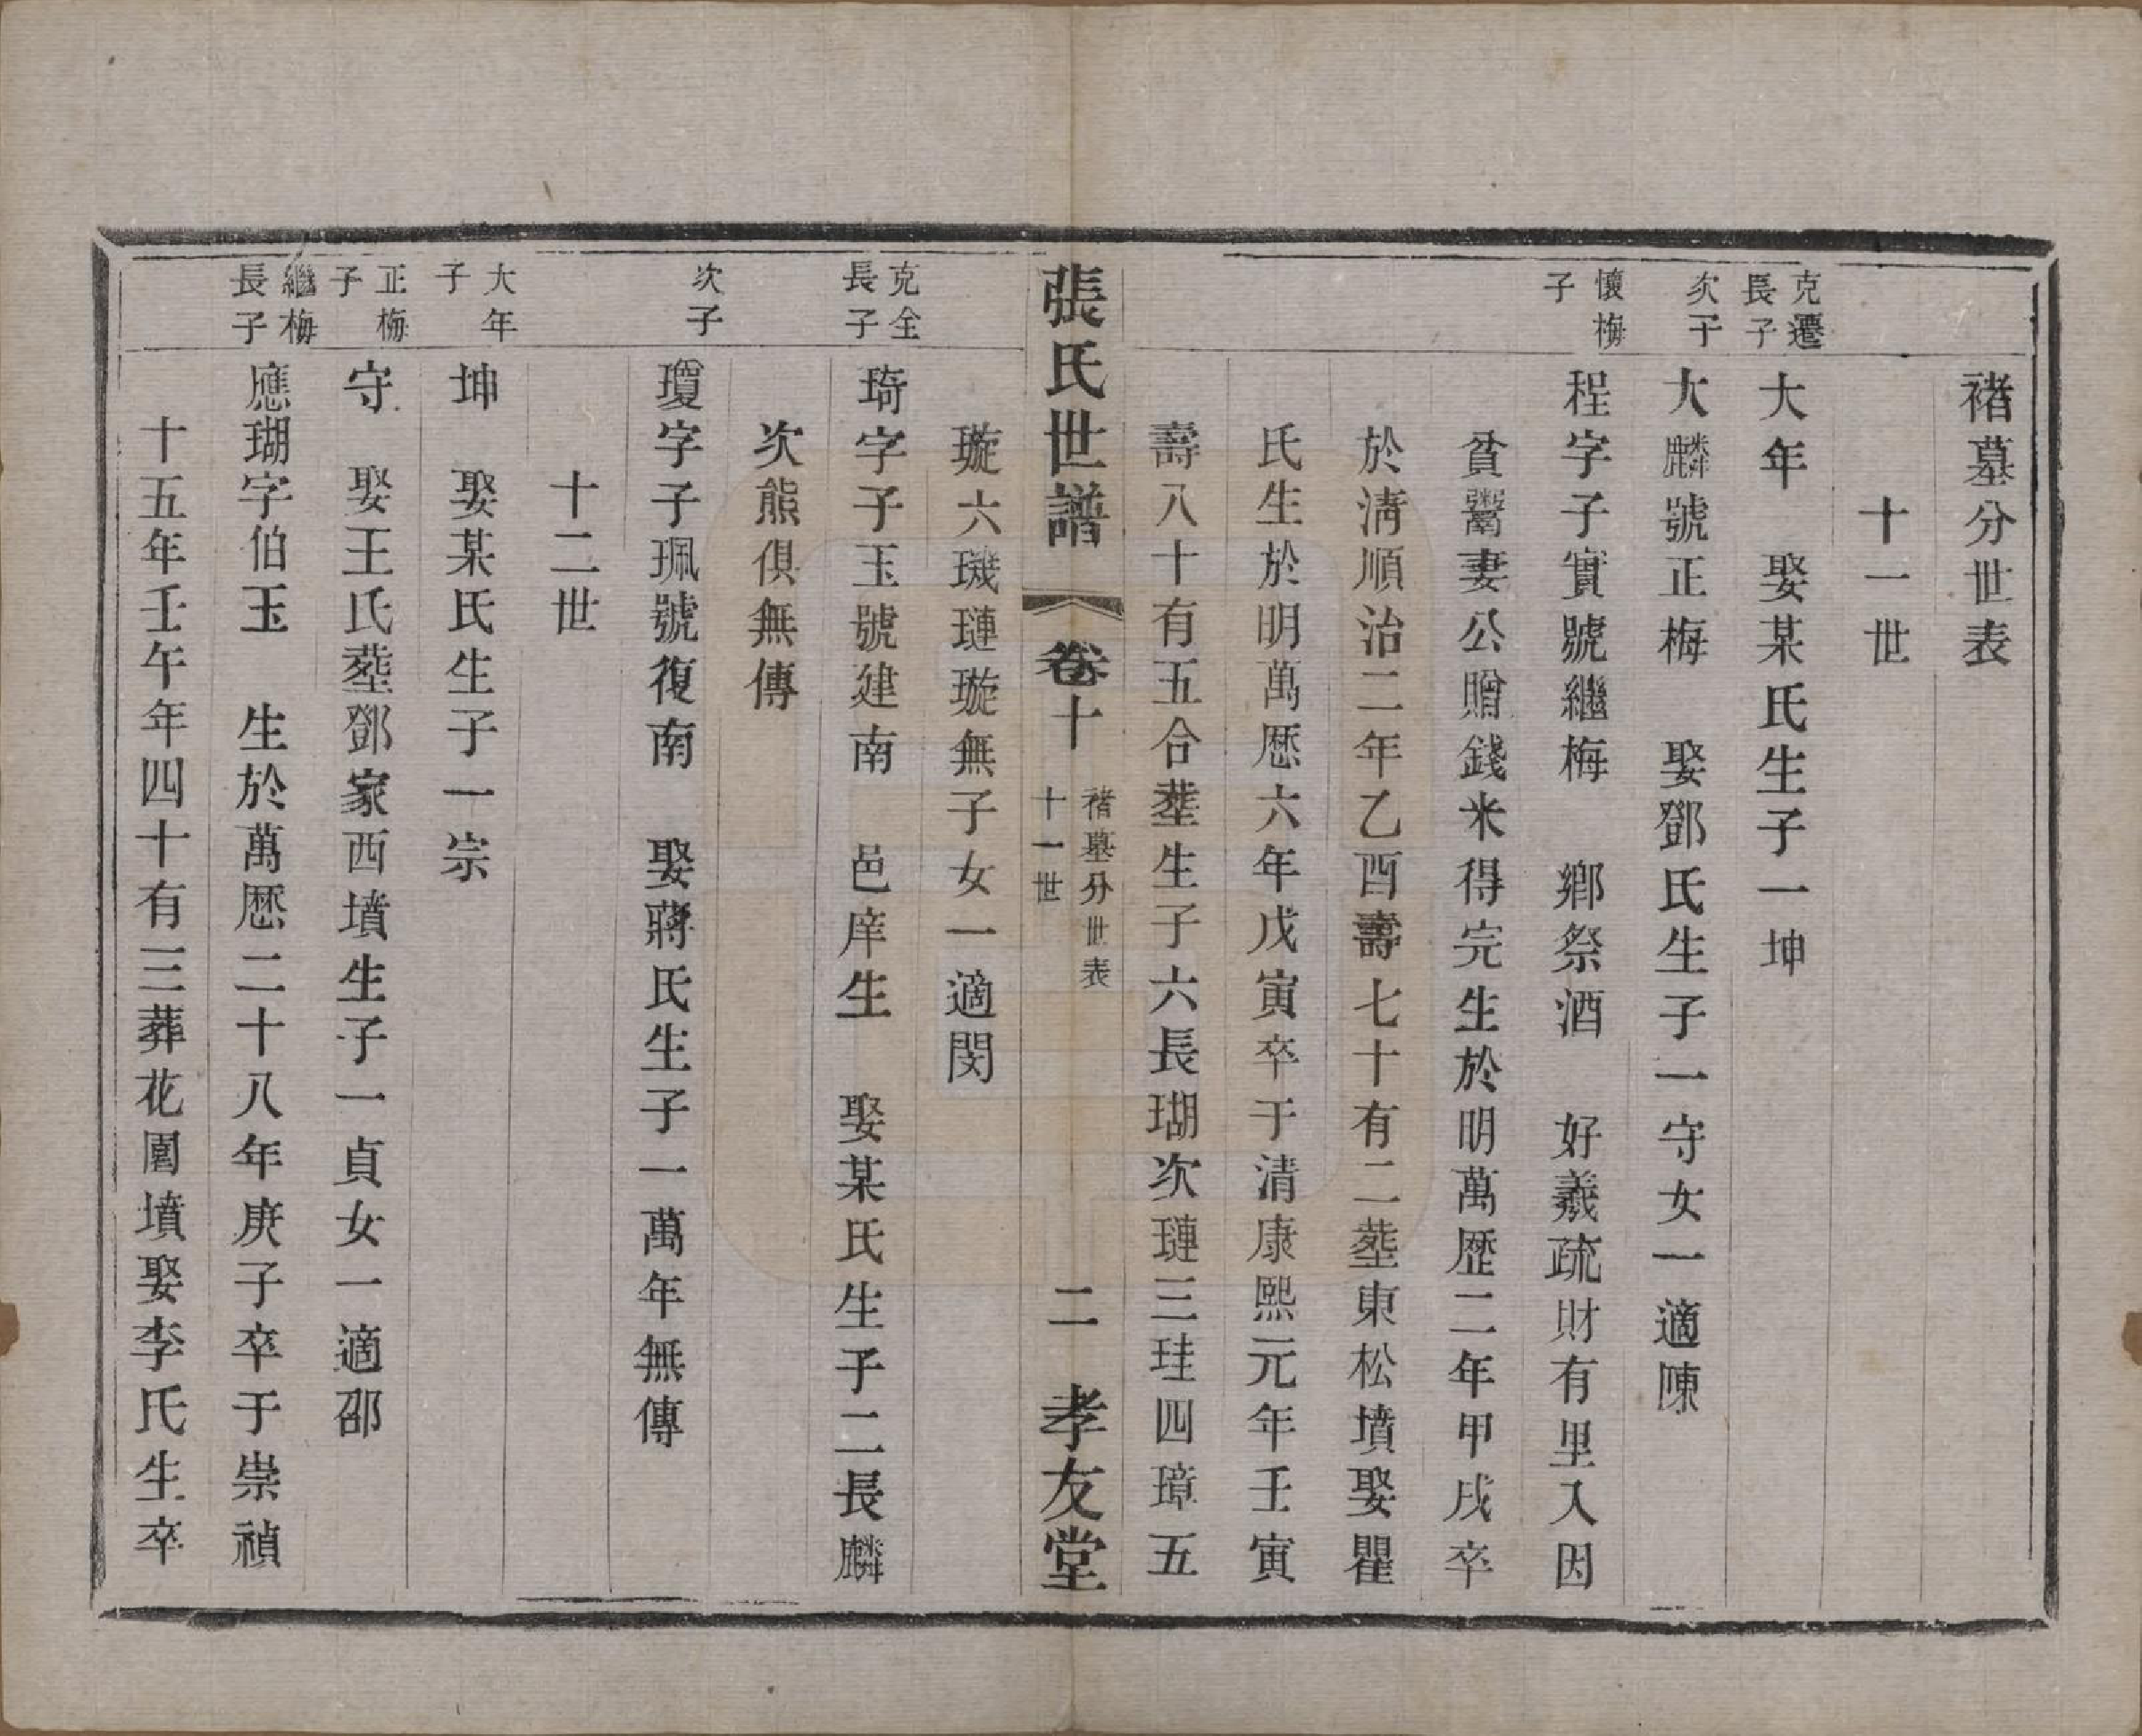 褚墓分世表
十一世
克遷
長子
大年　娶某氏生子一坤
次子
大麟號正梅　娶鄧氏生子一守女一適陳
懷梅
子
程字子實號繼梅　鄉祭酒　好義疏財有里人因
貧鬻妻公贈錢米得完生於明萬歷二年甲戌卒
於清順治二年乙酉壽七十有二塟東松墳娶瞿
氏生於明萬歷六年戊寅卒于清康熙元年壬寅
壽八十有五合塟生子六長瑚次璉三珪四璋五
張氏世譜
卷十
褚墓分世表
十一世
二
孝友堂
璇六璣璉璇無子女一適閔
克全
長子
琦字子玉號建南　邑庠生　娶某氏生子二長麟
次熊俱無傳
次子
瓊字子珮號復南　娶蔣氏生子一萬年無傳
十二世
大年
子
坤　娶某氏生子一宗
正梅
子
守　娶王氏塟鄧家西墳生子一貞女一適邵
繼梅
長子
應瑚字伯玉　生於萬歷二十八年庚子卒于崇禎
十五年壬午年四十有三葬花園墳娶李氏生卒